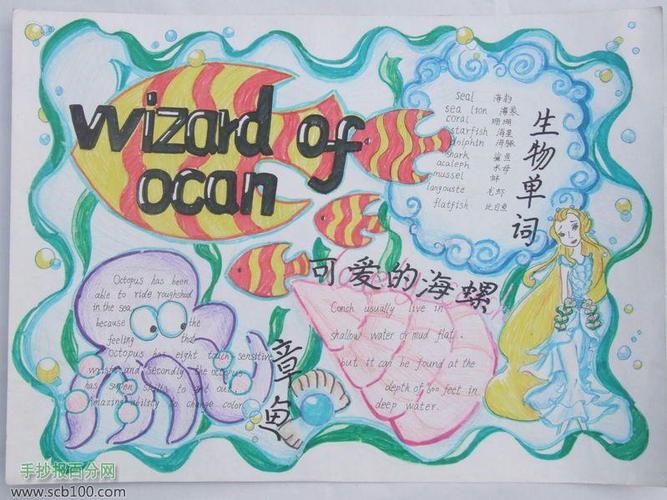 wizard of
ocan
seal 海豹
sea lion 海象
coral 珊瑚
starfish 海星
dolphin 海豚
shark 鲨鱼
acaleph 水母
mussel 蚌
langouste 龙虾
flatfish 比目鱼
生物单词
可爱的海螺
Octopus has been
able to ride roughshod
in the sea
because the
feeling that
octopus has eight touch sensitive
and secondly the octopus
has super skills to get out
amazing ability to change color
章鱼
Conch usually live in
shallow water or mud flat.
but it can be found at the
depth of 600 feet in
deep water.
手抄报百分网
www.scb100.com